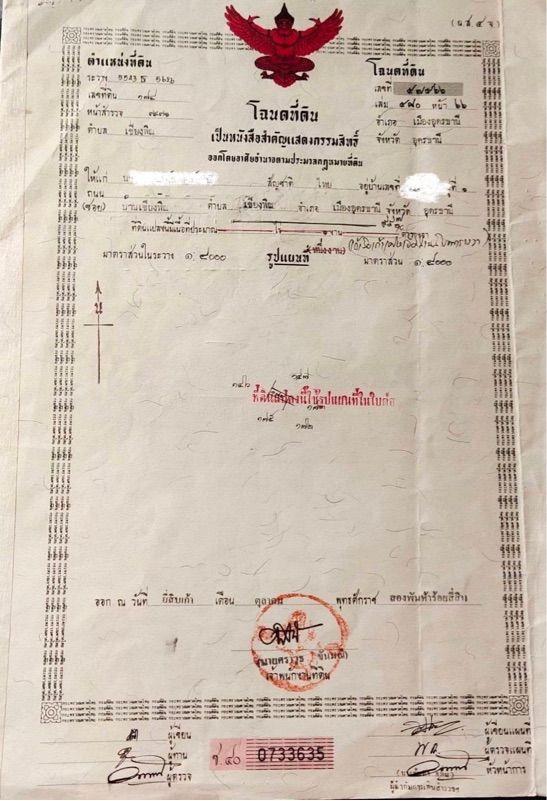 (น.ส. ๔ จ)
ตำแหน่งที่ดิน
ระวาง
เลขที่ดิน ๑๗๔
หน้าสำรวจ
ตำบล เชียงพิณ
โฉนดที่ดิน
เลขที่
เล่ม ๕๘๐ หน้า ๖๖
อำเภอ เมืองอุดรธานี
จังหวัด อุดรธานี
โฉนดที่ดิน
เป็นหนังสือสำคัญแสดงกรรมสิทธิ์
ออกโดยอาศัยอำนาจตามประมวลกฎหมายที่ดิน
ให้แก่ สัญชาติ ไทย อยู่บ้านเลขที่
ถนน
(ซอย) บ้านเชียงพิณ ตำบล เชียงพิณ อำเภอ เมืองอุดรธานี จังหวัด อุดรธานี
ที่ดินแปลงนี้มีเนื้อที่ประมาณ ไร่ ๑ งาน ตารางวา
(หนึ่งงาน)
มาตราส่วนในระวาง ๑:๔๐๐๐ รูปแผนที่ มาตราส่วน ๑:๔๐๐๐
น
๑๔๖ ๑๔๗
ที่ดินแปลงนี้ใช้รูปแผนที่ในใบต่อ
๑๗๕ ๑๗๓
๑๗๒
ออก ณ วันที่ ยี่สิบเก้า เดือน ตุลาคม พุทธศักราช สองพันห้าร้อยสี่สิบ
เจ้าพนักงานที่ดิน
ผู้เขียน
ผู้ทาน
ผู้ตรวจ
ช.๔๐ 0733635
ผู้เขียนแผนที่
ผู้ตรวจแผนที่
หัวหน้าการ